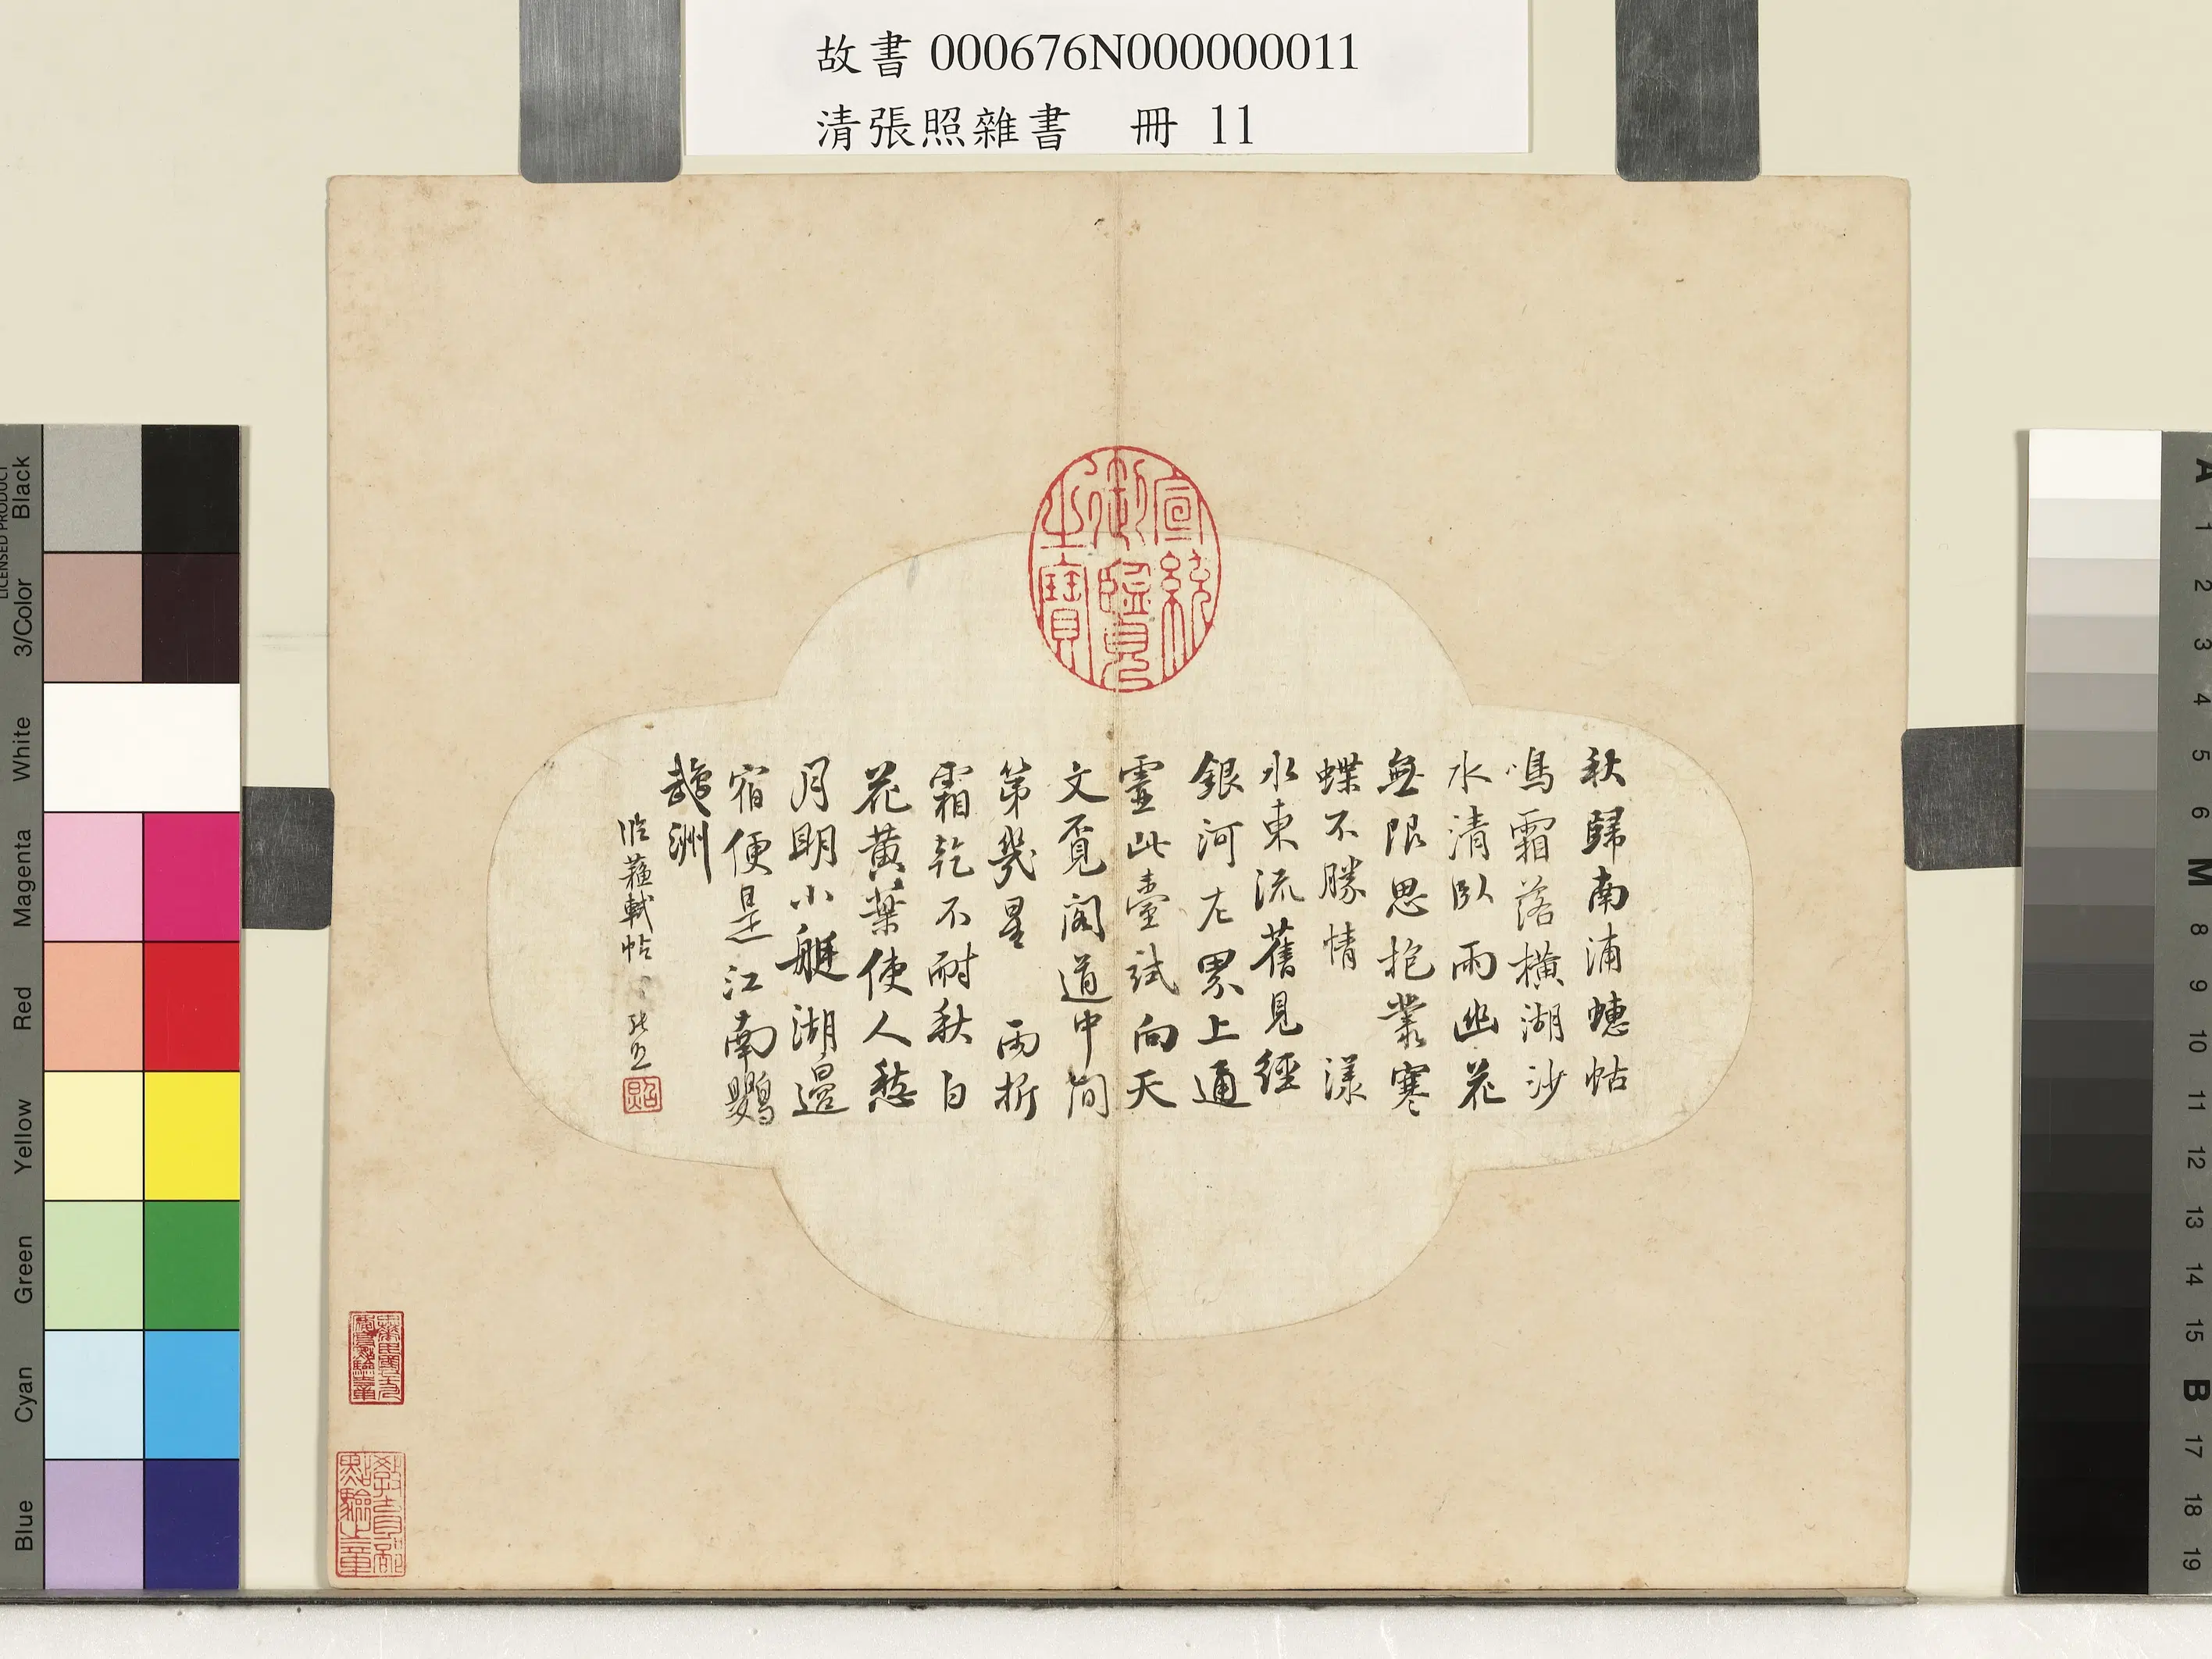 故書 000676N000000011
清張照雜書 冊 11
宣統
御覽
之寶
秋歸南浦蟪蛄
鳴霜落橫湖沙
水清臥雨幽花
無限思抱叢寒
蝶不勝情 漾
水東流舊見經
銀河左界上通
靈此臺試向天
文覓閣道中間
第幾星 雨折
霜乾不耐秋白
花黃葉使人愁
月明小艇湖邊
宿便是江南鸚
鵡洲
臨蘇軾帖
張照
照
LICENSED PRODUCT
Black
3/Color
White
Magenta
Red
Yellow
Green
Cyan
Blue
A
1
2
3
4
5
6
M
8
9
10
11
12
13
14
15
B
17
18
19